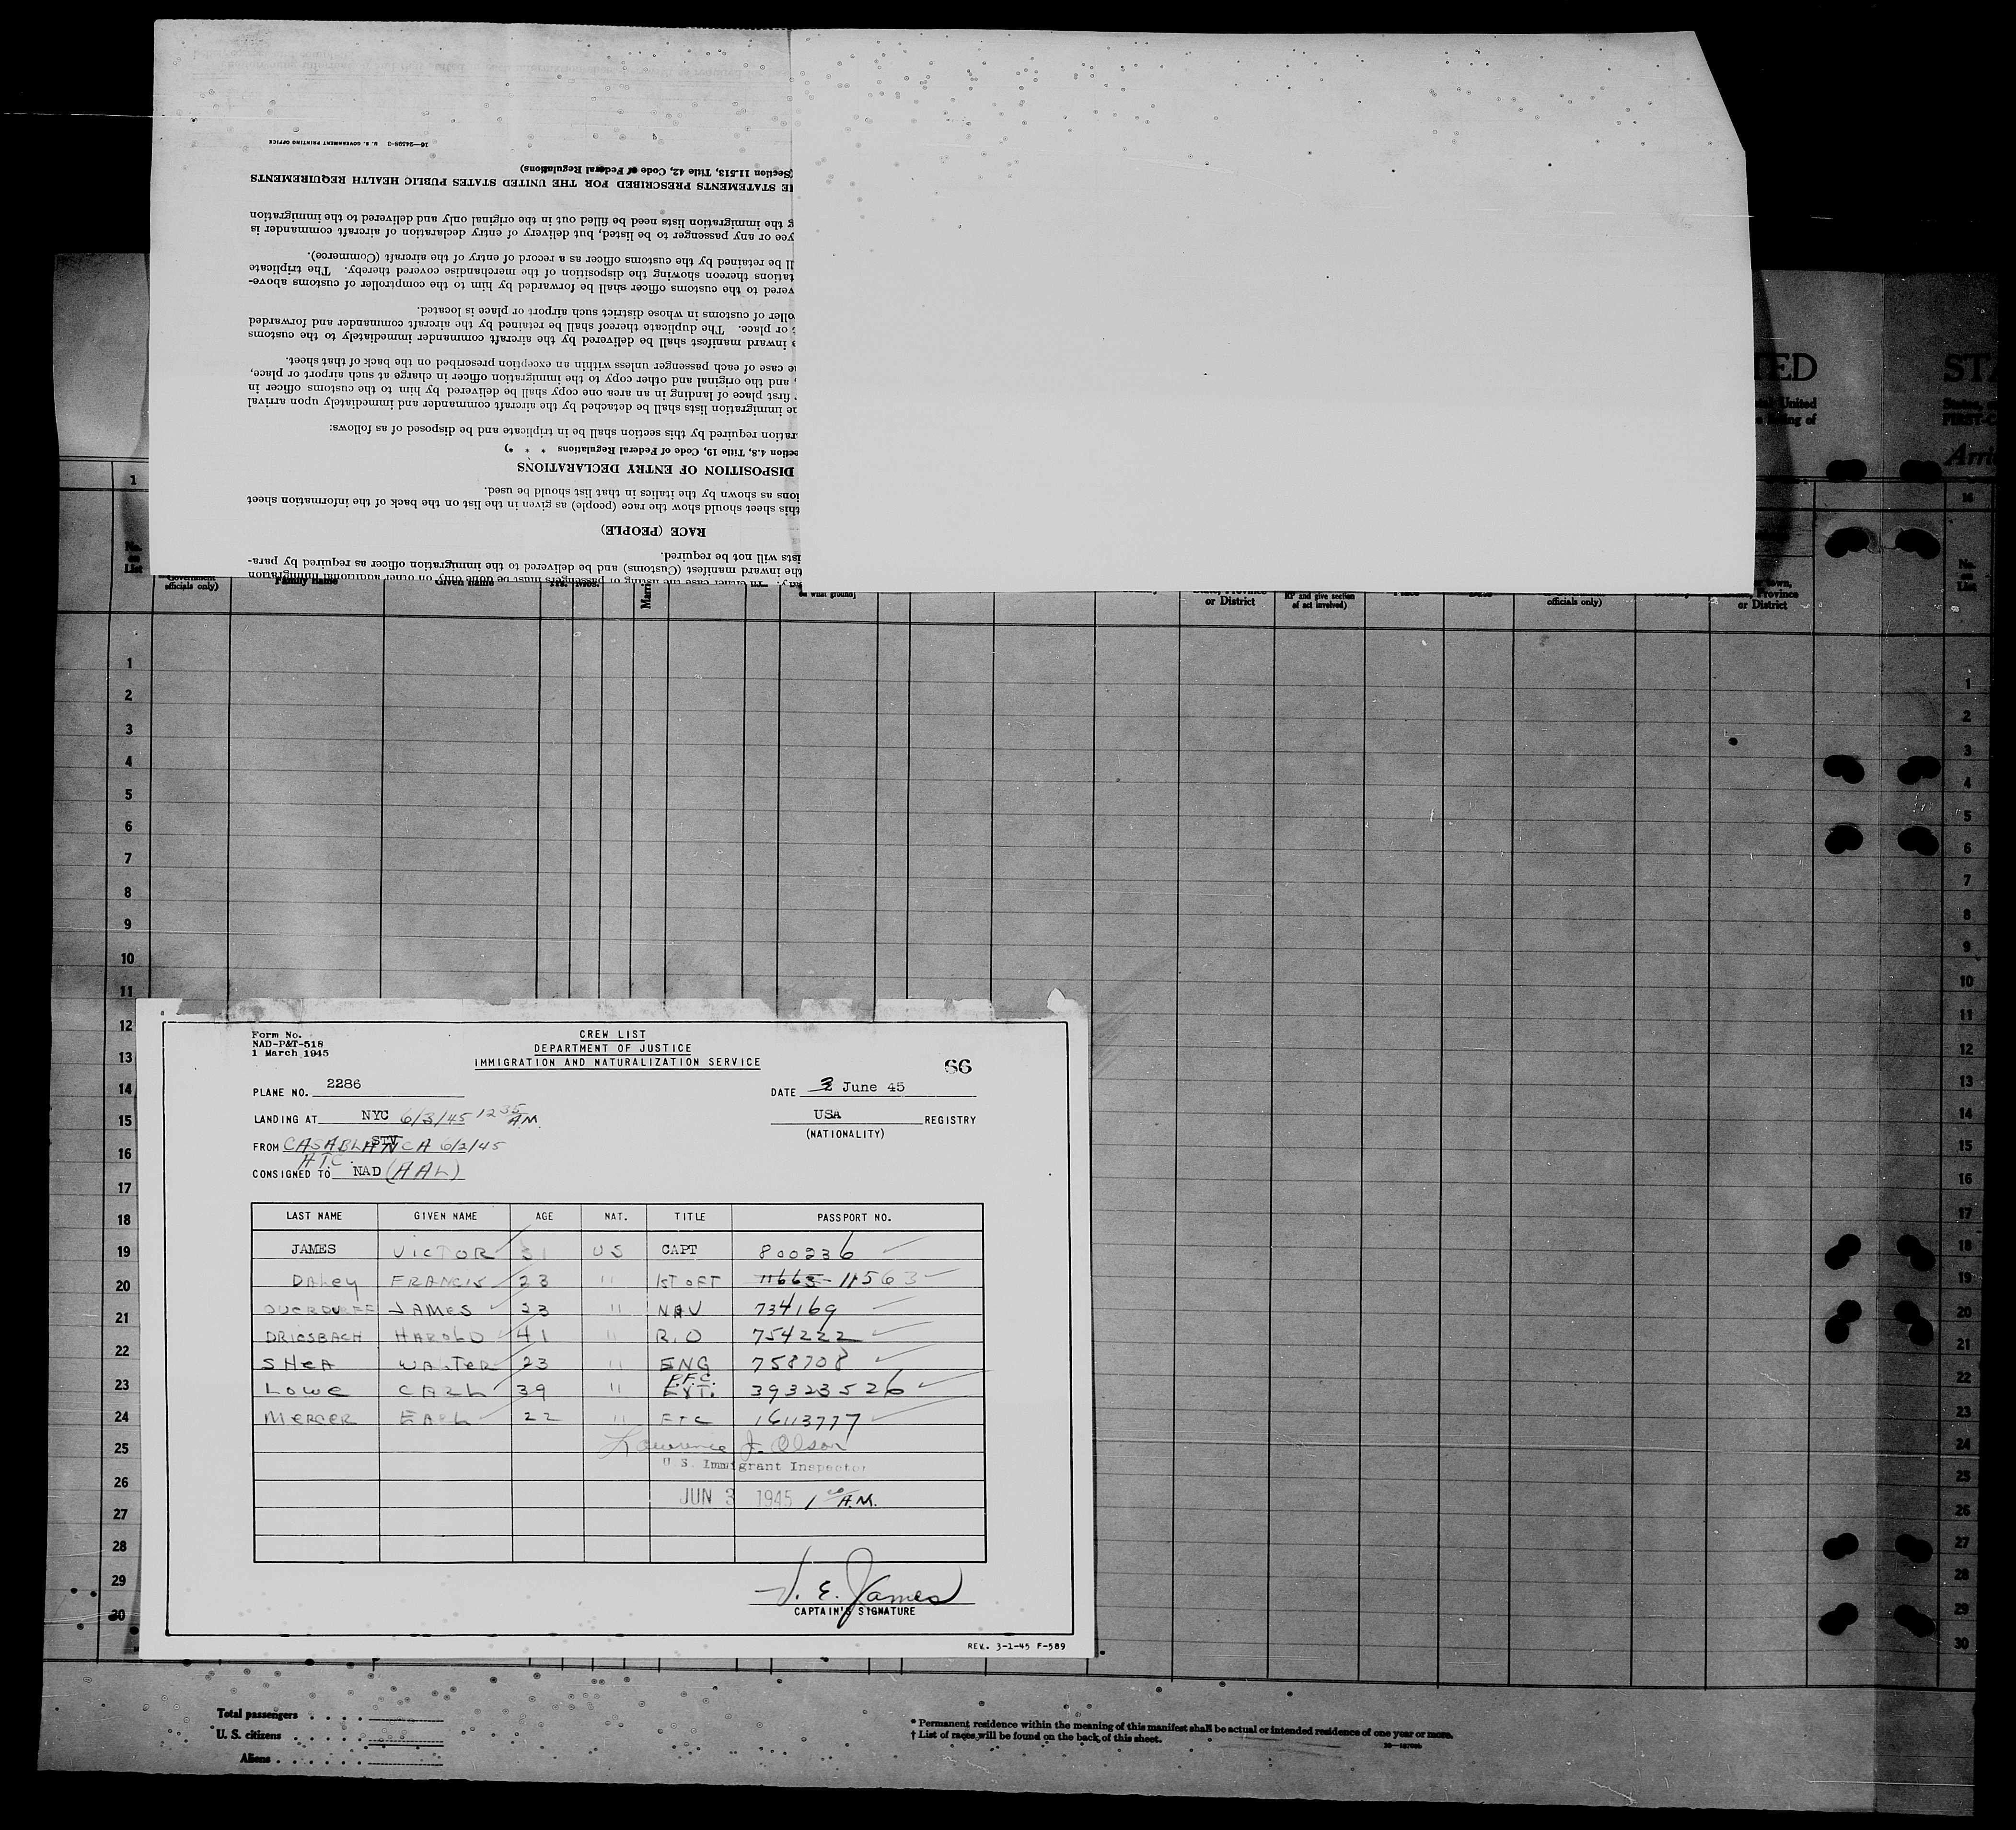 16—24598-3 U. S. GOVERNMENT PRINTING OFFICE
(Section 11.513, Title 42, Code of Federal Regulations)
HE STATEMENTS PRESCRIBED FOR THE UNITED STATES PUBLIC HEALTH REQUIREMENTS
g the immigration lists need be filled out in the original only and delivered to the immigration
yee or any passenger to be listed, but delivery of entry declaration of aircraft commander is
ll be retained by the customs officer as a record of entry of the aircraft (Commerce).
tations thereon showing the disposition of the merchandise covered thereby. The triplicate
vered to the customs officer shall be forwarded by him to the comptroller of customs above-
oller of customs in whose district such airport or place is located.
t or place. The duplicate thereof shall be retained by the aircraft commander and forwarded
e inward manifest shall be delivered by the aircraft commander immediately to the customs
ne case of each passenger unless within an exception prescribed on the back of that sheet.
, and the original and other copy to the immigration officer in charge at such airport or place,
first place of landing in an area one copy shall be delivered by him to the customs officer in
he immigration lists shall be detached by the aircraft commander and immediately upon arrival
ration required by this section shall be in triplicate and be disposed of as follows:
ection 4.8, Title 19, Code of Federal Regulations * * *)
DISPOSITION OF ENTRY DECLARATIONS
ions as shown by the italics in that list should be used.
this sheet should show the race (people) as given in the list on the back of the information sheet
RACE (PEOPLE)
ists will not be required.
the inward manifest (Customs) and be delivered to the immigration officer as required by para-
TED STA
United
ing of
Arri
1 16
No. on List
officials only) Family name Given name Yrs. Mos. Marri on what ground] or District RP and give section of act involved) Place Date officials only) town, Province or District
No. on List
1 1
2 2
3 3
4 4
5 5
6 6
7 7
8 8
9 9
10 10
11 11
12 12
13 13
14 14
15 15
16 16
17 17
18 18
19 19
20 20
21 21
22 22
23 23
24 24
25 25
26 26
27 27
28 28
29 29
30 30
Form No.
NAD-P&T-518
1 March 1945
CREW LIST
DEPARTMENT OF JUSTICE
IMMIGRATION AND NATURALIZATION SERVICE
66
PLANE NO. 2286 DATE 2 June 45
LANDING AT NYC 6/3/45 12 35 A.M. USA REGISTRY
(NATIONALITY)
FROM STV CASABLANCA 6/2/45
CONSIGNED TO A.T.C. NAD (AAL)
LAST NAME GIVEN NAME AGE NAT. TITLE PASSPORT NO.
JAMES VICTOR 31 US CAPT 800236
DALEY FRANCIS 23 " 1ST OFT 11663-11563
JAMES 23 " NAV 734169
DRICSBACH HAROLD 41 " R.O 754222
SHEA WALTER 23 " ENG 758708
LOWE CARL 39 " P.F.C. EXT. 39323526
MERCER EARL 22 " FTC 16113777
Lawrence J. Olson
U. S. Immigrant Inspector
JUN 3 1945 1 00 A.M.
V. E. James
CAPTAIN'S SIGNATURE
REV. 3-1-45 F-589
Total passengers
U. S. citizens
Aliens
* Permanent residence within the meaning of this manifest shall be actual or intended residence of one year or more.
† List of races will be found on the back of this sheet.